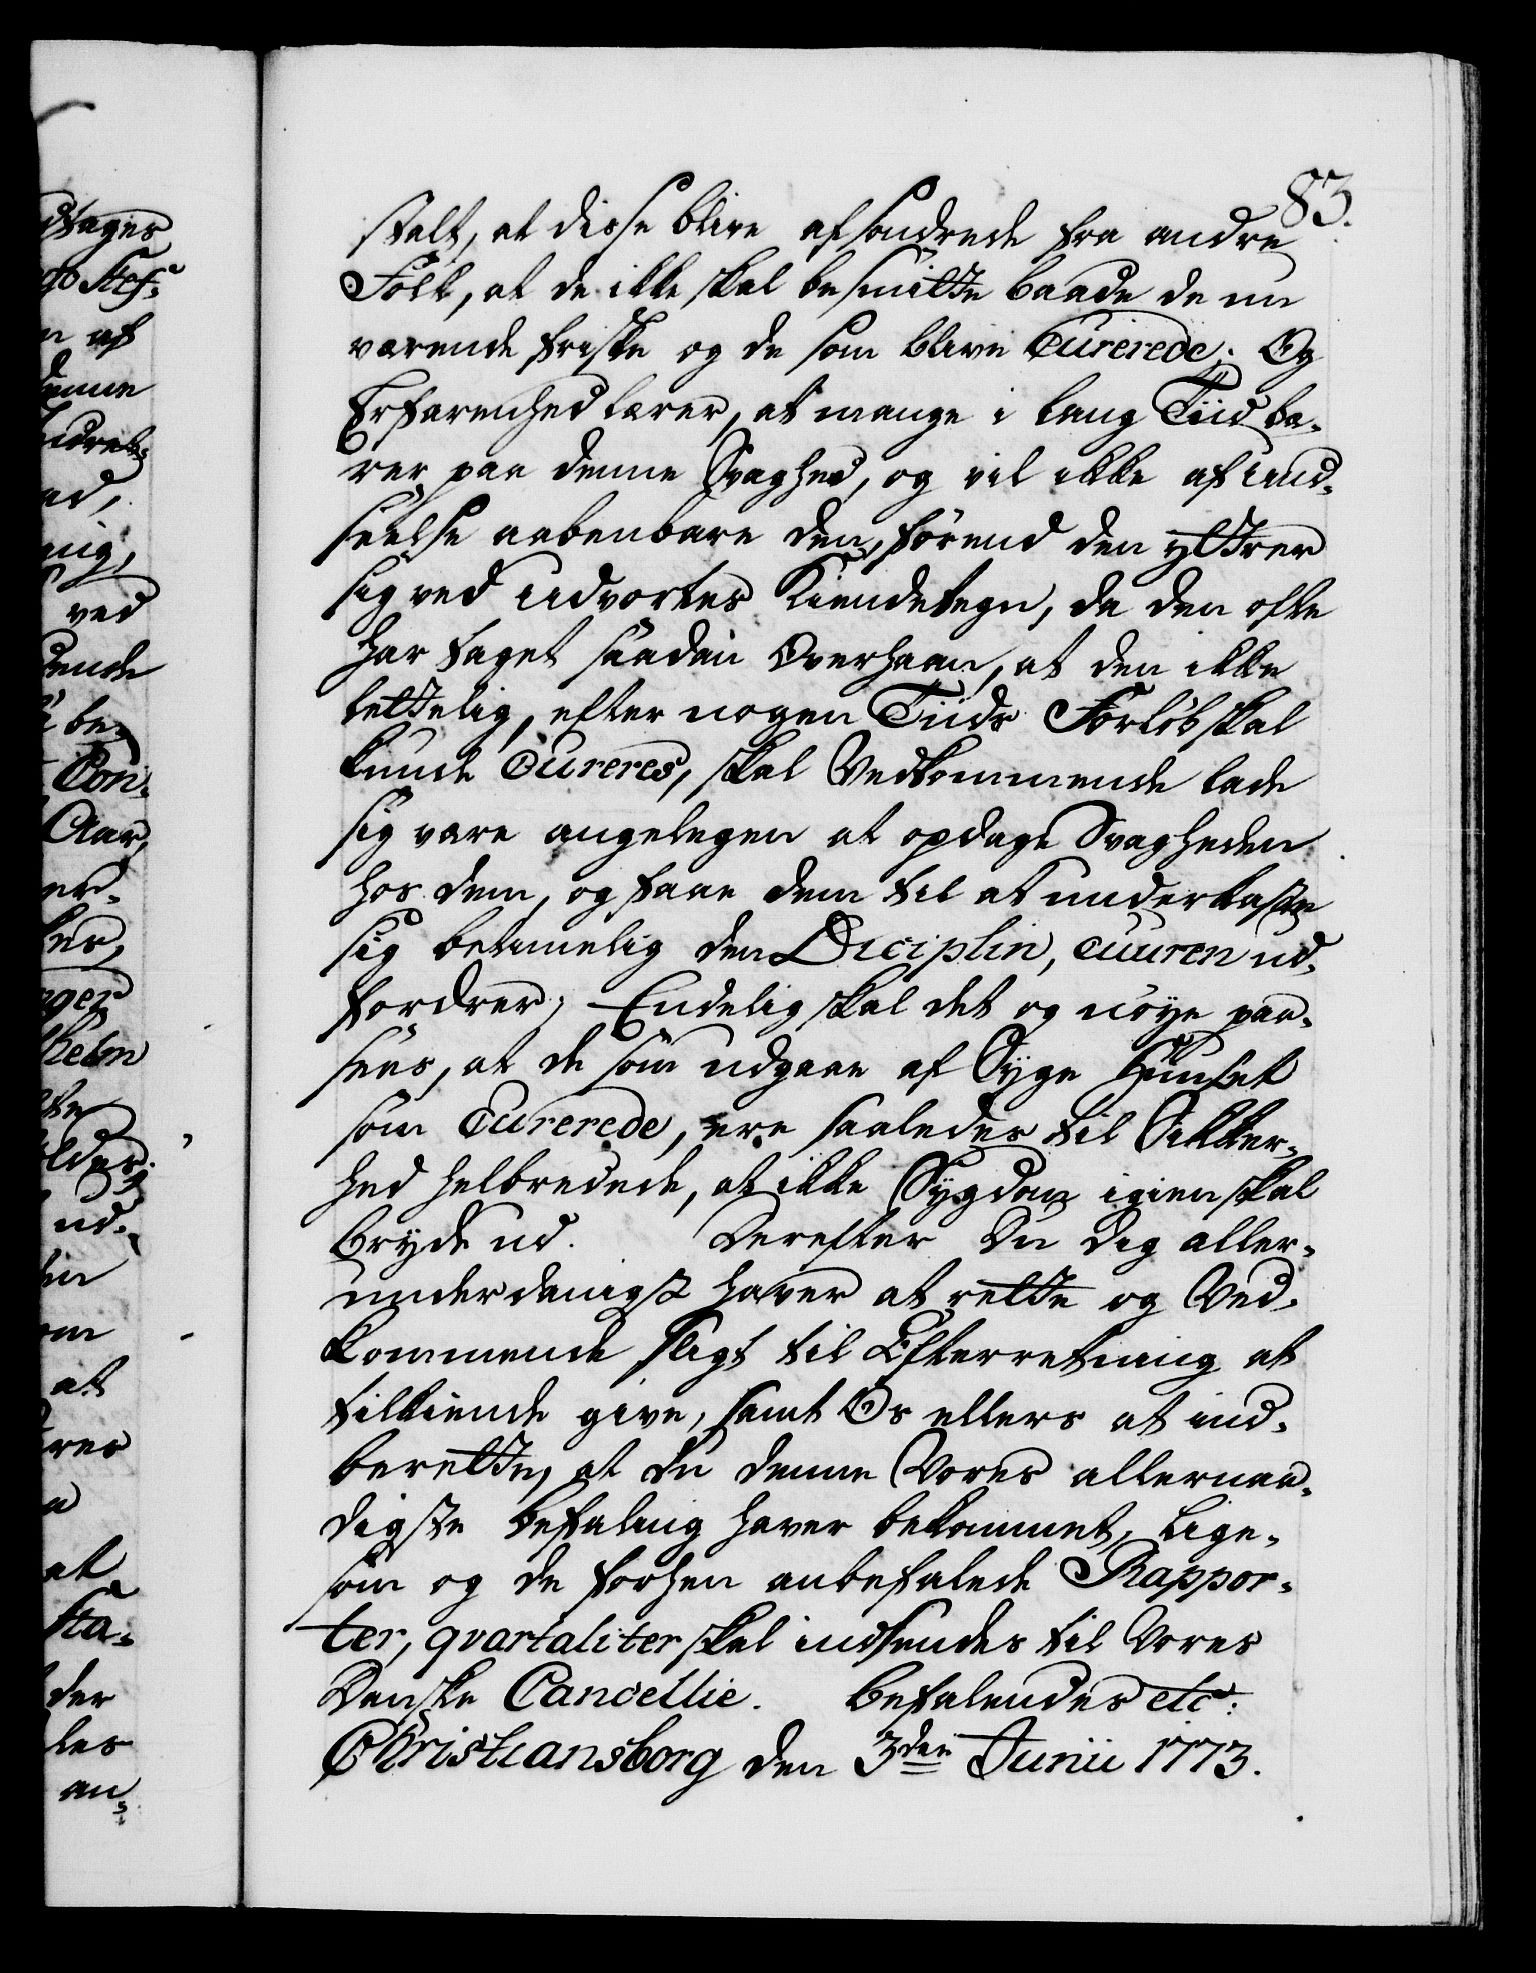 83.
stalt, at disse blive afsondrede fra andre
Folk, at de ikke skal besmitte baade de nu
værende friske og de som blive Curerede; Og
Erfarenhed lærer, at mange i lang Tiid bæ-
rer paa denne Svaghed, og vil ikke af Und-
seelse aabenbare den, førend den yttrer
sig ved udvortes Kiendetegn, da den ofte
har taget saadan Overhaan, at den ikke
lettelig, efter nogen Tiids Forløb skal
kunde Cureres, skal Vedkommende lade
sig være angelegen at opdage Svagheden
hos dem, og faae dem til at underkaste
sig betimelig den Diciplin, Cuuren ud-
fordrer; Endelig skal det og nøye paa-
sees, at de som udgaae af Syge Huuset
som Curerede, ere saaledes til Sikker-
hed helbredede, at ikke Sygdom igien skal
bryde ud. Derefter Du dig aller-
underdanigst haver at rette og Ved-
kommende sligt til Efterretning at
tilkiende give, samt Os ellers at ind-
berette, at du denne Vores allernaa-
digste Befaling haver bekommet, lige-
som og de forhen anbefalede Rappor-
ter, qvartaliter skal indsendes til Vores
Danske Cancellie. Befalendes etc:
Christiansborg den 3den Junii 1773.